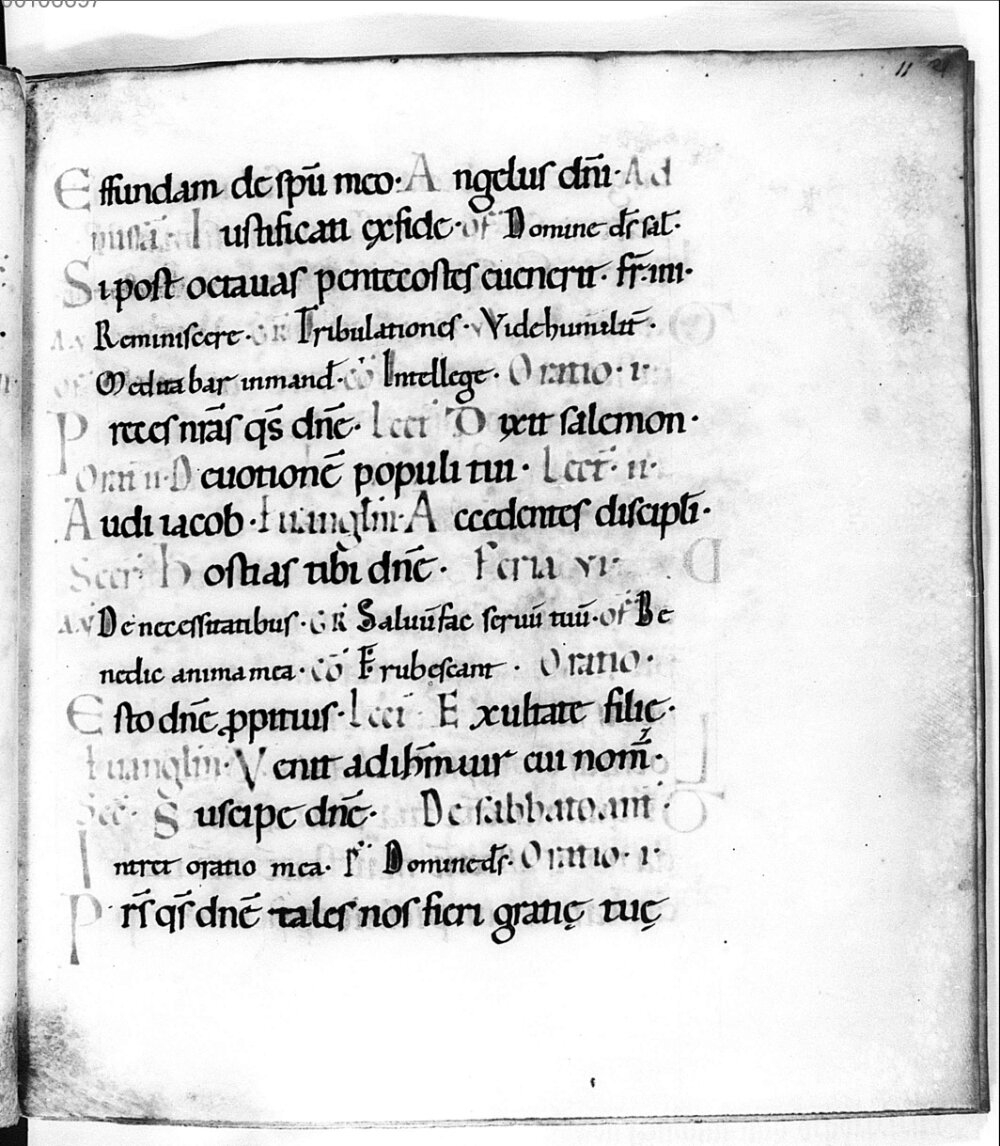 11
Effundam de spū meo· Angelus dn̄i· Ad
missā· Iustificati ęxfide· of Domine ds̄ sal̄·
Si post octauas pentecostes euenerit· fr̄·iiii·
A.v Reminiscere· GR Tribulationes· v Videhumilit̄·
of Meditabar inmand̄· cō Intellege· Oratio· i·
Preces nr̄as qs̄ dn̄e· Lect̄ Dixit salemon·
Orat̄ ii· Deuotionē populi tui· Lect̄· ii·
Audi iacob· Euanglīū· Accedentes discipl̄i·
Secr̄· Hostias tibi dn̄e· Feria vi·
A.v De necessitatibus· GR Saluū fac seruū tuū· of Be
nedic anima mea· cō Erubescant· Oratio·
Esto dn̄e ꝓpitius· Lect̄ Exultate filię·
Euanglīū· Venit adihm̄ uir cui nom̄·
Sec̄· Suscipe dn̄e· De sabbato ant̄·
Intret oratio mea· P̄ Domine ds̄· Oratio· i·
Pr̄s qs̄ dn̄e tales nos fieri gratię tuę